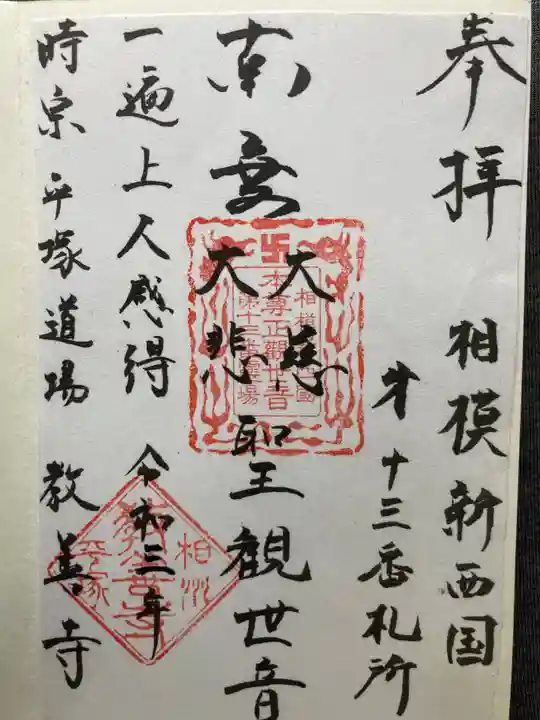 奉拝 相模新西国
才十三番札所
南無 大慈
大悲 聖観世音
一遍上人感得 令和三年
時宗 平塚道場 教善寺
相模
西國
本尊正觀世音
第十三番靈場
相州
教善寺
平塚